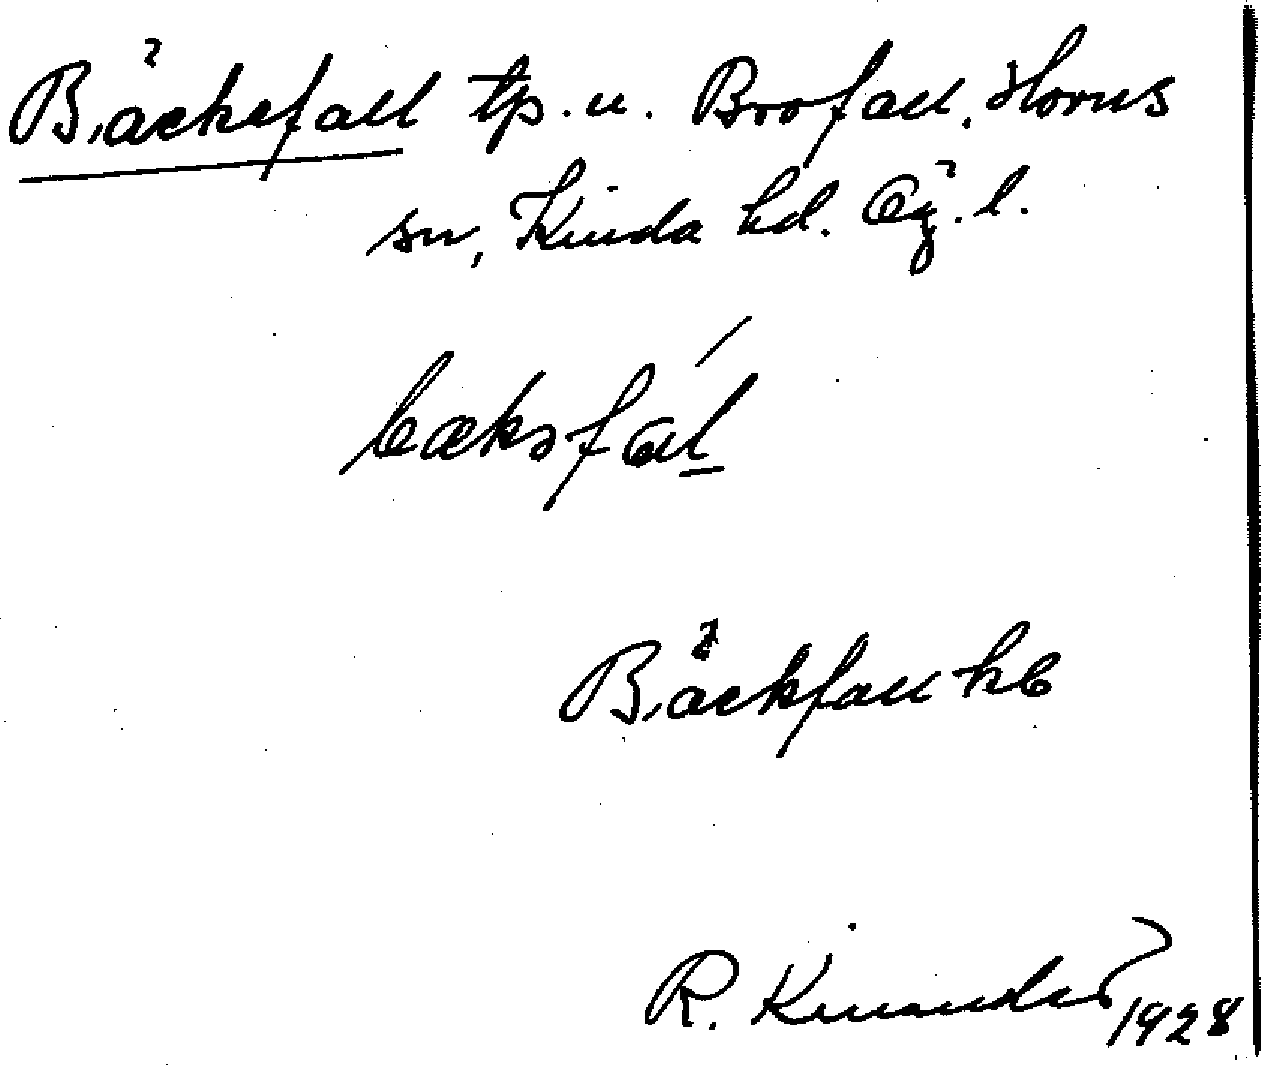 Bäckefall tp. u. Brofall, Horns
sn, Kinda hd. Ög. l.
bæksfal
Bäckfall hb
R. Kinander 1928